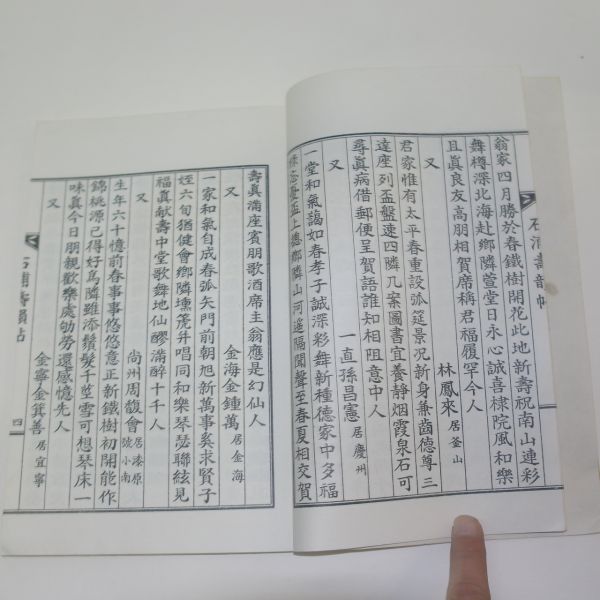 石浦壽韻帖
翁家四月勝於春鐵樹開花此地新壽祝南山連彩
舞樽深北海赴鄉隣萱堂日永心誠喜棣院風和樂
且眞良友高朋相賀席稱君福履罕今人
林鳳來居釜山
又
君家惟有太平春重設弧筵景况新身兼齒德尊三
達座列盃盤速四隣几案圖書宜養靜烟霞泉石可
尋眞病借郵便呈賀語誰知相阻意中人
一直孫昌憲居慶州
又
一堂和氣藹如春孝子誠深彩舞新種德家中多福
上德鄉隣山河遥隔聞聲至春夏相交賀
壽眞滿座賓朋歌酒席主翁應是幻仙人
金海金鍾萬居金海
又
一家和氣自成春弧矢門前朝旭新萬事奚求賢子
姪六旬猶健會鄉隣壎篪幷唱同和樂琴瑟聯絃見
福眞献壽中堂歌舞地仙醪滿醉十千人
尙州周馥會居漆原號小南
又
生年六十憶前春事事悠悠意正新鐵樹初開能作
錦桃源已得好爲隣雖添鬚髮千莖雪可想琴床一
味眞今日朋親歡樂處劬勞還感憶先人
金寧金箕善居宜寧
石浦壽韻帖
四